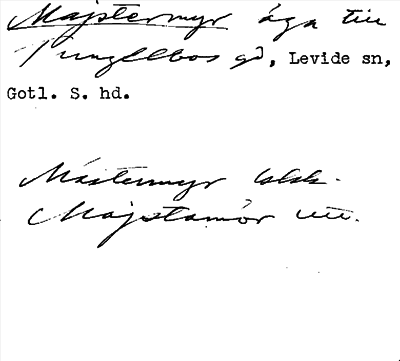 Majstermyr äga till
Pungllbos gd, Levide sn,
Gotl. S. hd.
Mästermyr
Majstamör utt.